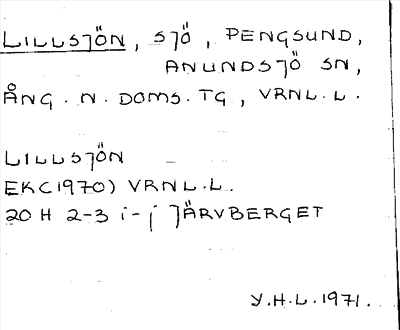 LILLSJÖN, SJÖ, PENGSUND,
ANUNDSJÖ SN,
ÅNG. N. DOMS. TG, VRNL.L.
LILLSJÖN
EK(1970) VRNL.L.
20 H 2-3 i-j JÄRVBERGET
Y.H.L. 1971.